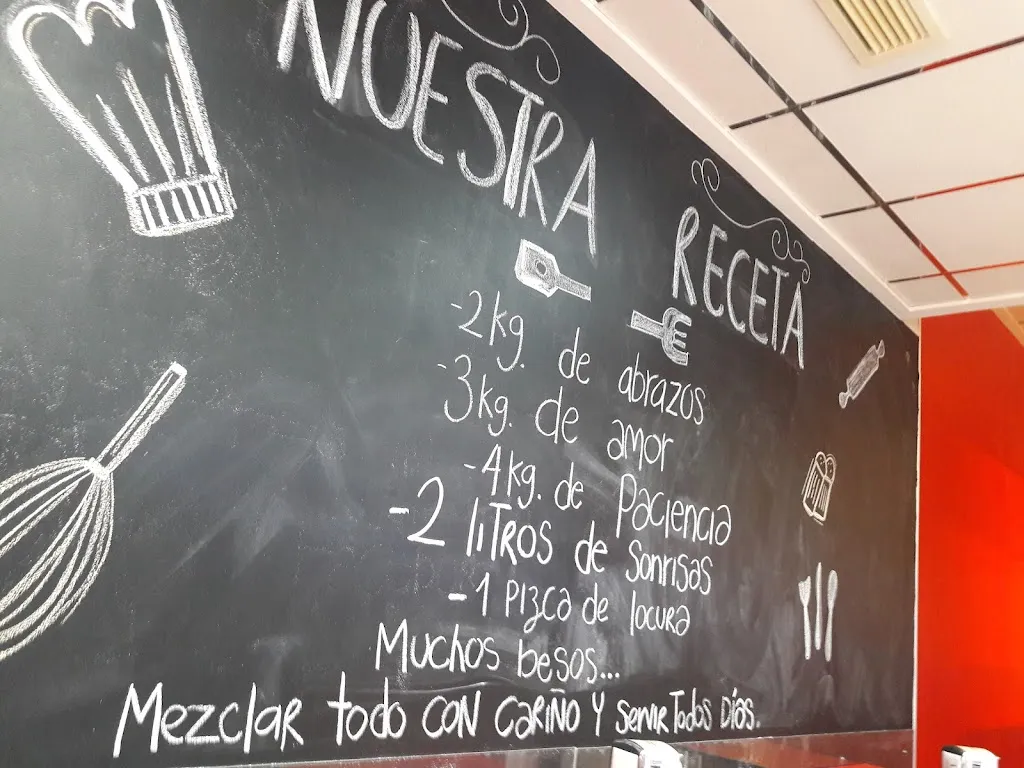 NUESTRA RECETA
-2kg. de abrazos
-3kg. de amor
-4kg. de Paciencia
-2 litros de Sonrisas
-1 pizca de locura
Muchos besos...
Mezclar todo con cariño y servir todos días.